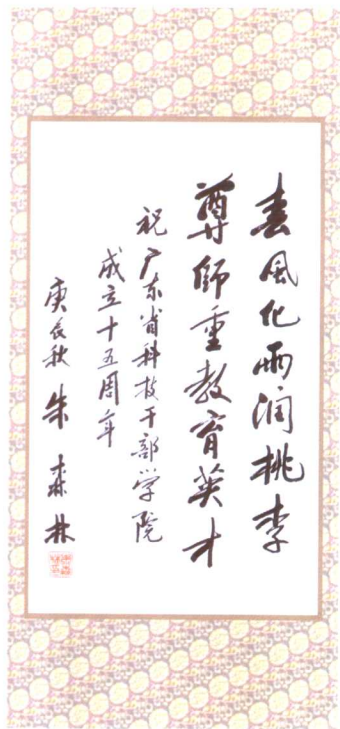 春风化雨润桃李
尊师重教育英才
祝广东省科技干部学院
成立十五周年
庚辰秋 朱森林